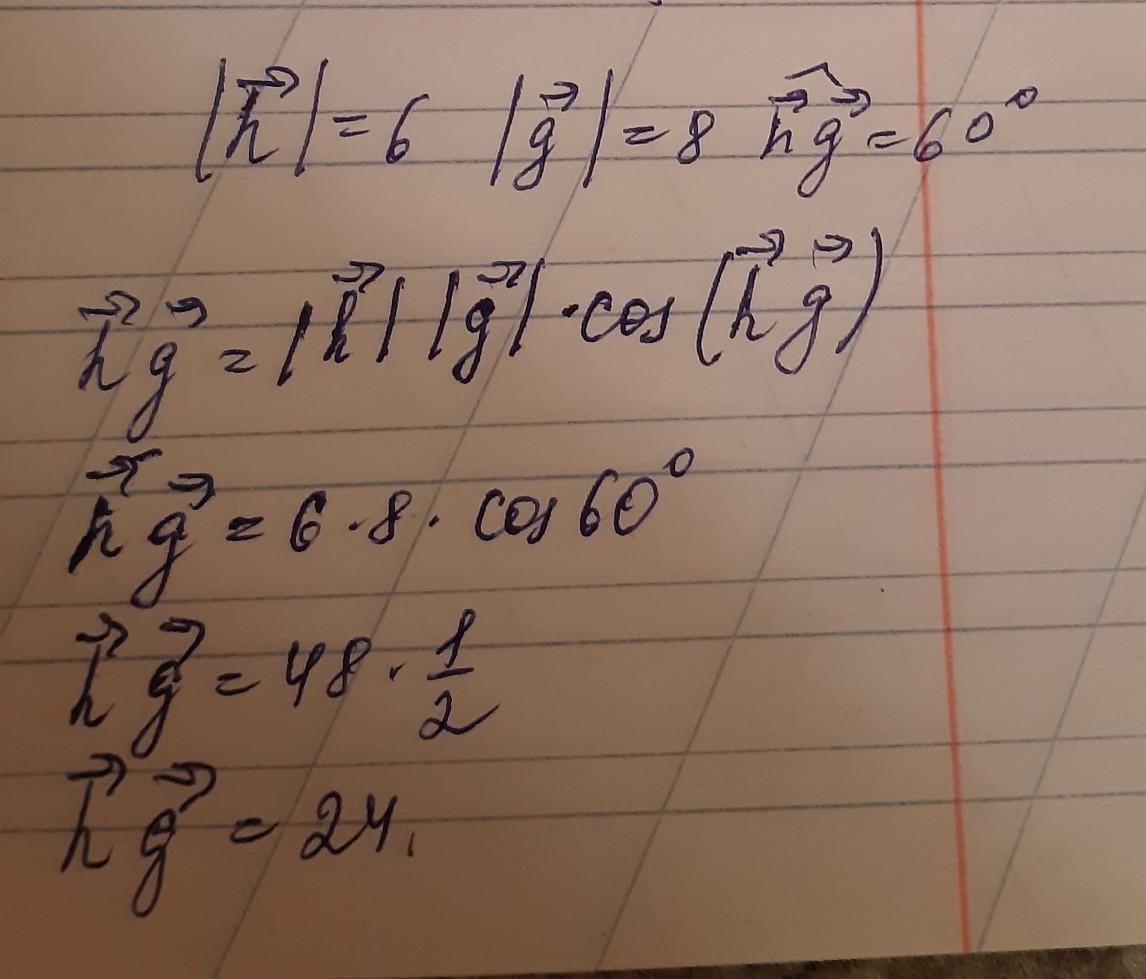 |h⃗| = 6 |g⃗| = 8 h⃗g⃗ = 60°
h⃗ g⃗ = |h⃗| |g⃗| · cos (h⃗ g⃗)
h⃗ g⃗ = 6 · 8 · cos 60°
h⃗ g⃗ = 48 · 1/2
h⃗ g⃗ = 24.